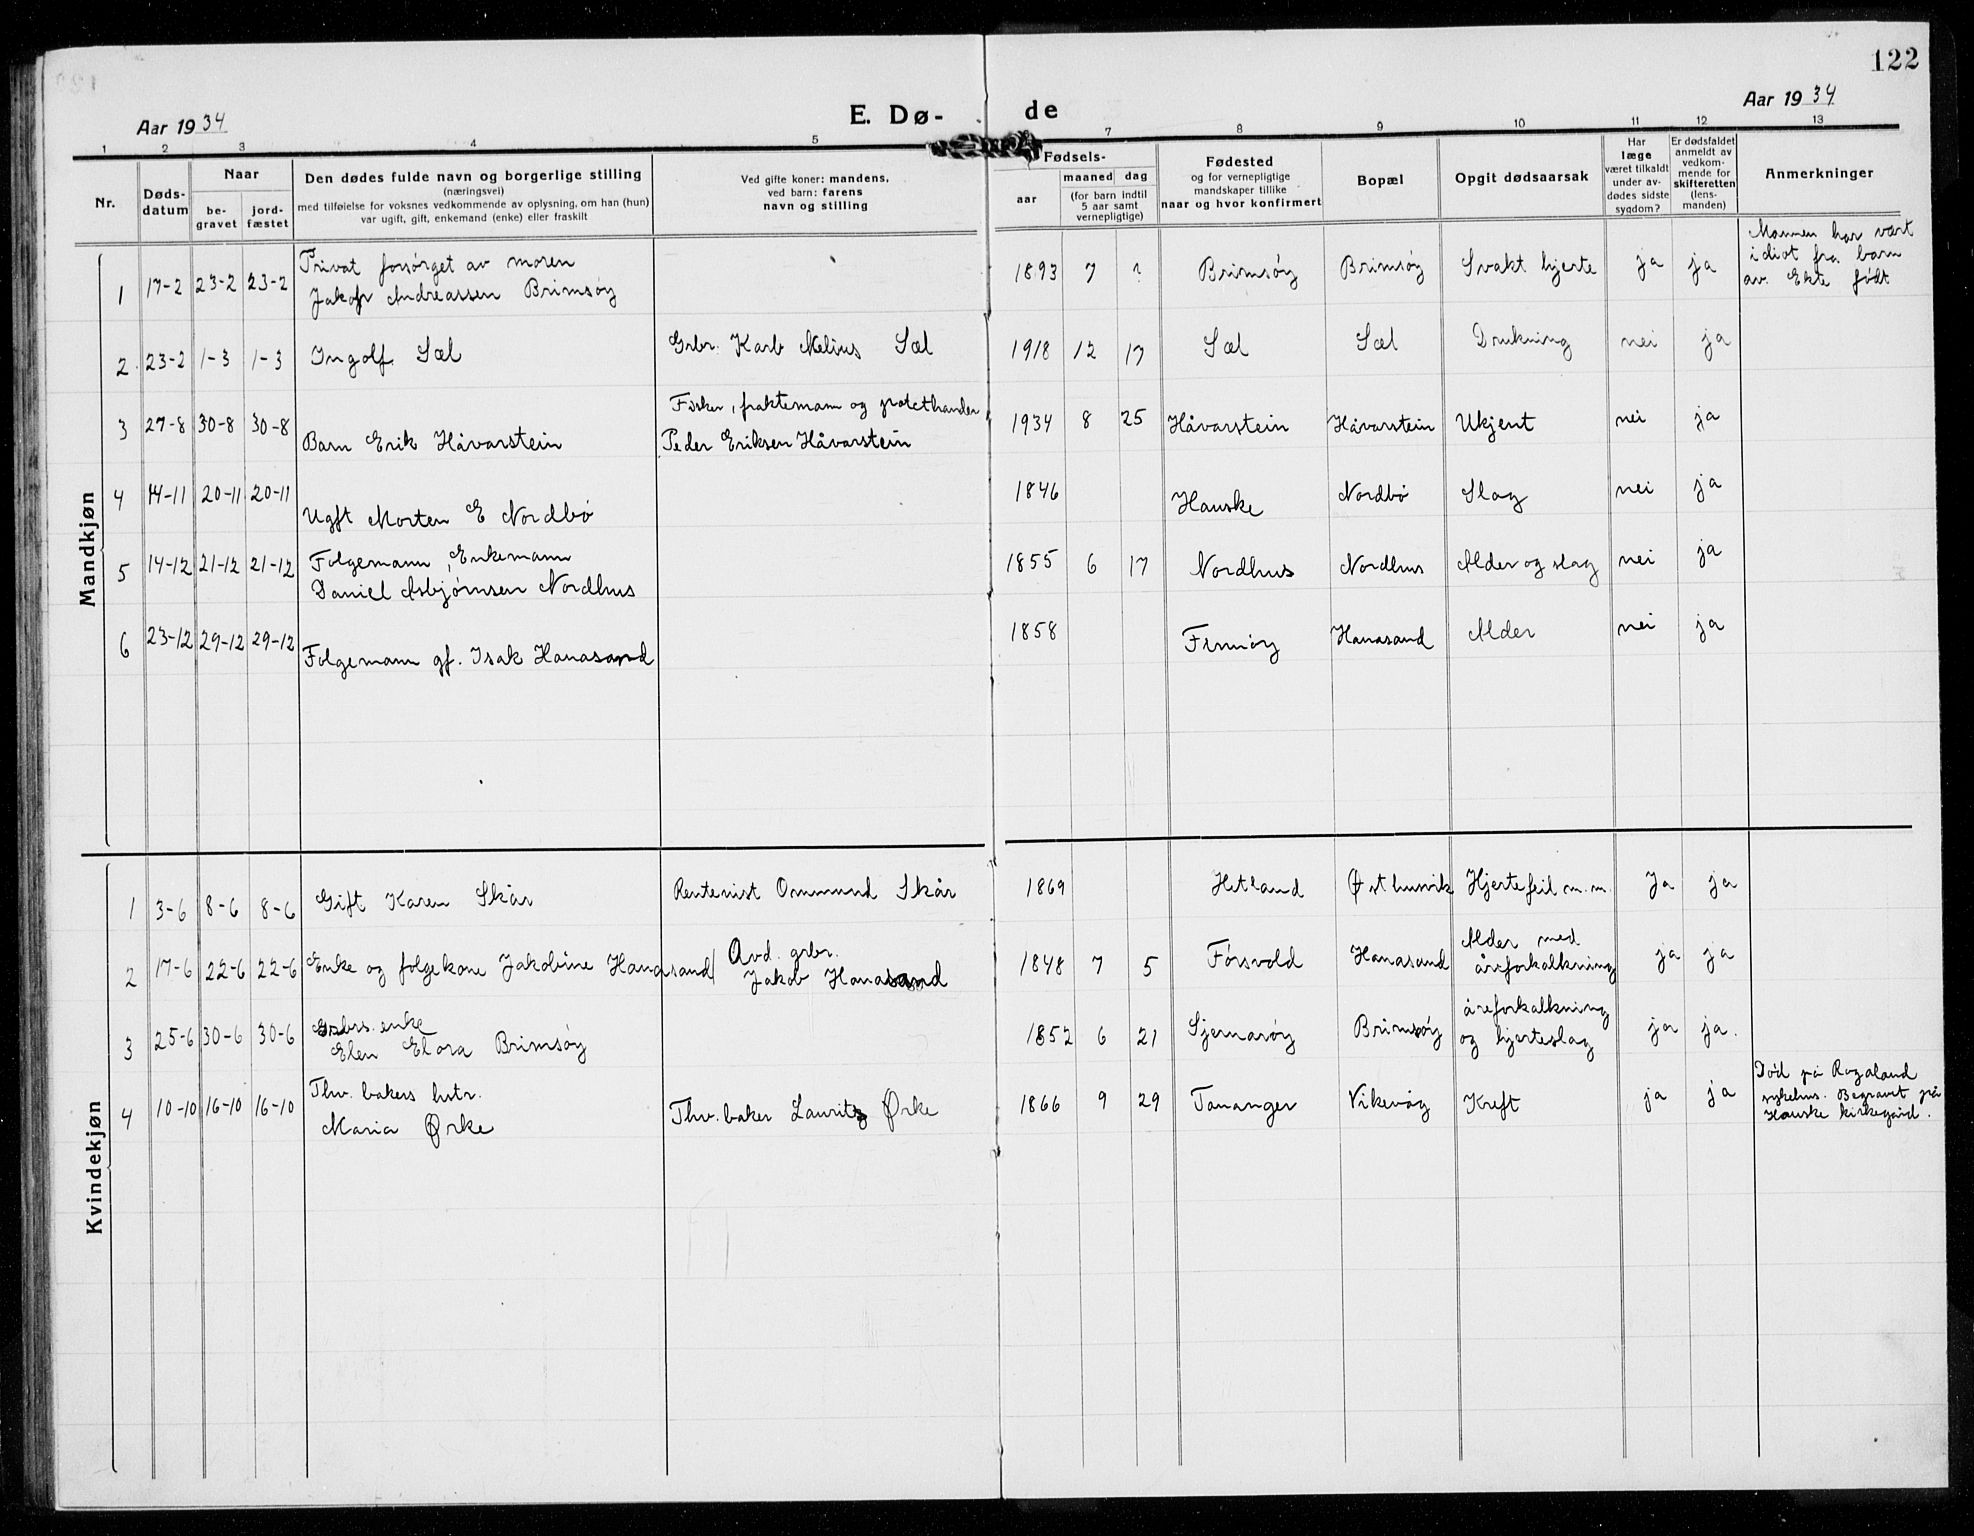 122
Aar 1934
E. Dø-
de
Aar 1934
1 2 3 4 5 7 8 9 10 11 12 13
Nr.
Døds-
datum
Naar
be-
gravet
jord-
fæstet
Den dødes fulde navn og borgerlige stilling
(næringsvei)
med tilføielse for voksnes vedkommende av oplysning, om han (hun)
var ugift, gift, enkemand (enke) eller fraskilt
Ved gifte koner: mandens,
ved barn: farens
navn og stilling
Fødsels-
aar
maaned dag
(for barn indtil
5 aar samt
vernepligtige)
Fødested
og for vernepligtige
mandskaper tillike
naar og hvor konfirmert
Bopæl
Opgit dødsaarsak
Har
læge
været tilkaldt
under av-
dødes sidste
sygdom?
Er dødsfaldet
anmeldt av
vedkom-
mende for
skifteretten
(lens-
manden)
Anmerkninger
Mandkjøn
1 17-2 23-2 23-2 Privat forsørget av moren
Jakob Andreassen Brimsøy
1893 7 ? Brimsøy Brimsøy Svakt hjerte ja ja
Mannen har vært
idiot fra barn
av. Ekte født
2 23-2 1-3 1-3 Ingolf Sæl Grbr. Karl Melius Sæl 1918 12 17 Sæl Sæl Drukning nei ja
3 27-8 30-8 30-8 Barn Erik Håvarstein
Fisker, fraktemann og potethandler
Peder Eriksen Håvarstein
1934 8 25 Håvarstein Håvarstein Ukjent nei ja
4 14-11 20-11 20-11 Ugft Morten E Nordbø 1846 Hauske Nordbø Slag nei ja
5 14-12 21-12 21-12 Folgemann, Enkemann
Daniel Asbjørnsen Nordhus
1855 6 17 Nordhus Nordhus Alder og slag nei ja
6 23-12 29-12 29-12 Folgemann gf. Isak Hanasand 1858 Finnøy Hanasand Alder nei ja
Kvindekjøn
1 3-6 8-6 8-6 Gift Karen Skår Rentenist Ommund Skår 1869 Hetland Østhusvik Hjertefeil m.m. Ja ja
2 17-6 22-6 22-6 Enke og folgekone Jakobine Hanasand
Avd. grbr.
Jakob Hanasand
1848 7 5 Førsvold Hanasand
Alder med
åreforkalkning
ja ja
3 25-6 30-6 30-6 Grbrs. enke
Elen Elora Brimsøy
1852 6 21 Sjernarøy Brimsøy
åreforkalkning
og hjerteslag
ja ja.
4 10-10 16-10 16-10 Thv. bakers hstr.
Maria Ørke
Thv. baker Lauritz Ørke
1866 9 29 Tananger Vikevåg Kreft ja ja
Død på Rogaland
sykehus. Begravet på
Hauske kirkegård.